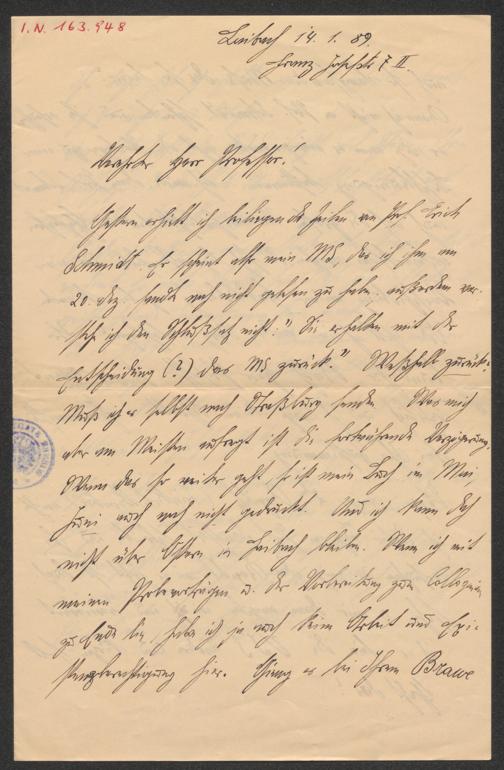 I.N. 163.948
Laibach 14. 1. 89.
Franz Josefstr 7 II.
Verehrter Herr Professor!
Gestern erhielt ich beiliegende Zeilen von Prof. Erich
Schmidt. Er scheint also mein MS, das ich ihm am
20. Dez. sandte noch nicht gelesen zu haben, außerdem ver-
steh ich den Schlußsatz nicht: "Sie erhalten mit der
Entscheidung (?) das MS zurück." Weßhalb zurück?
Muß ich es selbst nach Straßburg senden. Was mich
aber am Meisten aufregt ist die fortwährende Verzögerung.
Wenn das so weiter geht, so ist mein Buch im Mai
Juni auch noch nicht gedruckt. Und ich kann doch
nicht über Ostern in Laibach bleiben. Wenn ich mit
meinen Probevorträgen u. der Vorbereitung zum Colloquium
zu Ende bin, habe ich ja auch keine Arbeit und Exi-
stenzberechtigung hier. Gieng es bei Ihrem Brawe